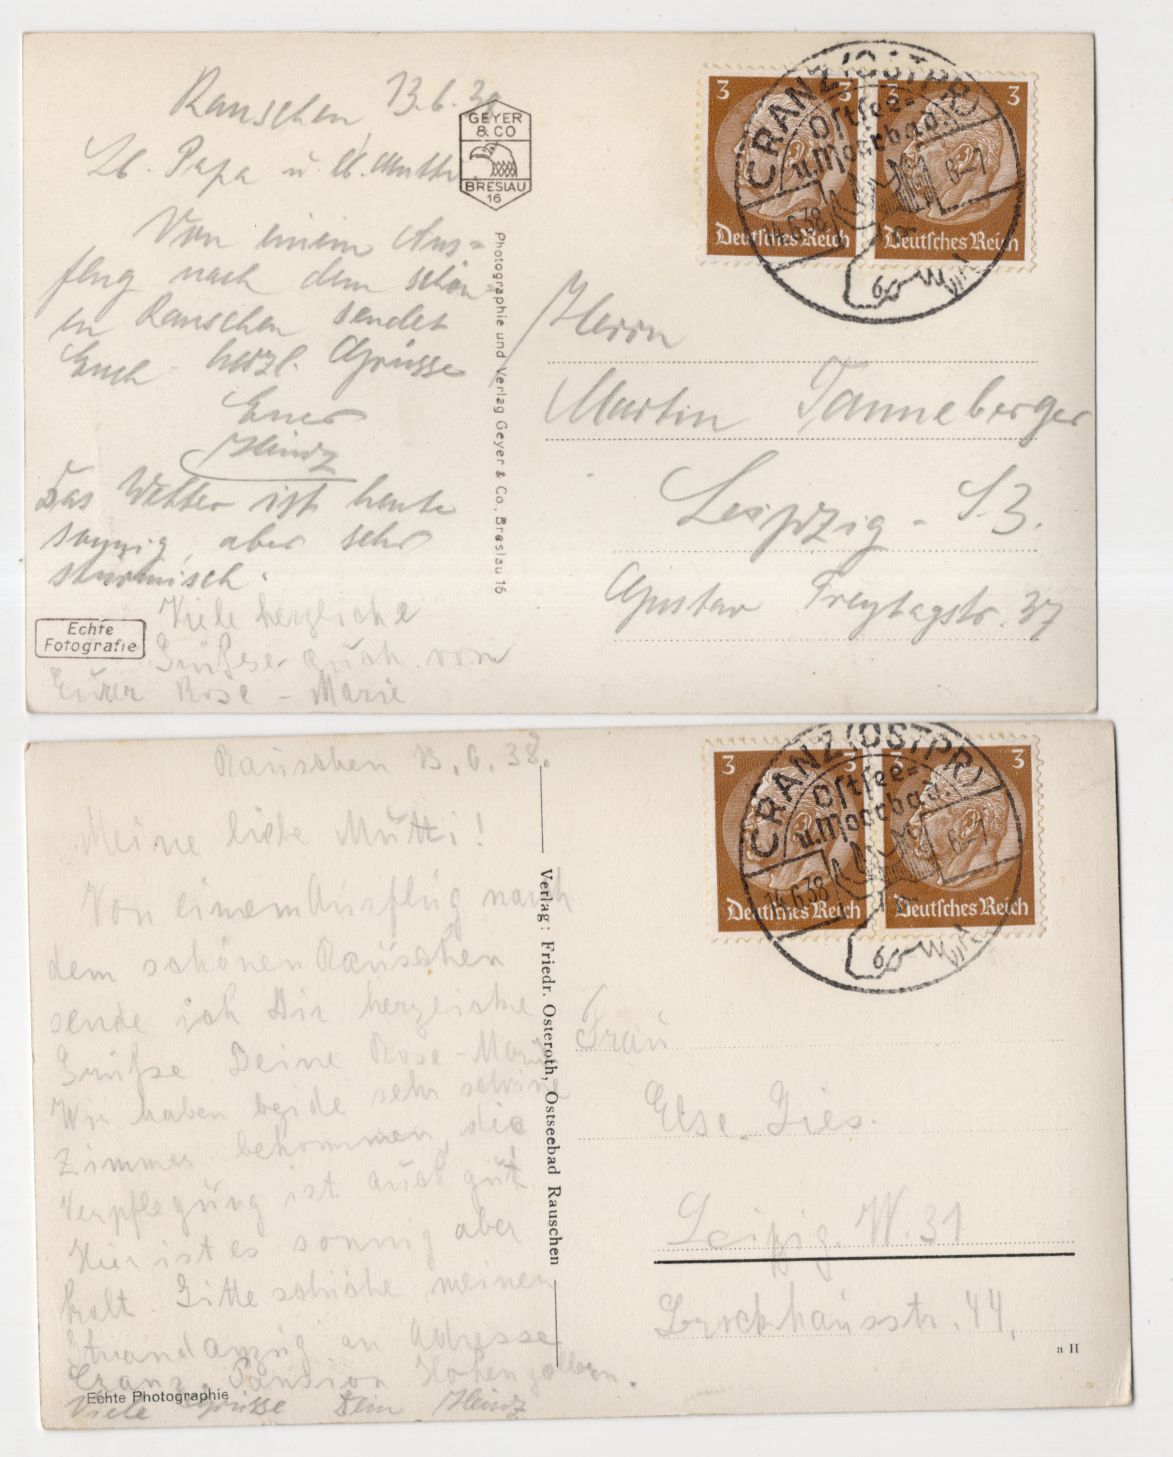 Rauschen 13.6.38
Lb. Papa u. lb. Mutti
Von einem Aus=
flug nach dem schön-
en Rauschen sendet
Euch herzl. Grüsse
Euer
Heinz
Das Wetter ist heute
sonnig, aber sehr
stürmisch.
Viele herzliche
Grüße auch von
Eurer Rose-Marie
Echte
Fotografie
GEYER
& CO
BRESLAU
16
Photographie und Verlag Geyer & Co., Breslau 16
3 3
3 3
Deutsches Reich
Deutsches Reich
CRANZ (OSTPR)
Ostsee=
u. Moorbad
14.6.38 6-7
Herrn
Martin Tanneberger
Leipzig - S.3.
Gustav Freytagstr. 37
Rauschen 13.6.38.
Meine liebe Mutti!
Von einem Ausflug nach
dem schönen Rauschen
sende ich Dir herzliche
Grüße Deine Rose-Marie
Wir haben beide sehr schöne
Zimmer bekommen, die
Verpflegung ist auch gut.
Hier ist es sonnig aber
kalt. Bitte schicke meinen
Strandanzug an Adresse
Cranz, Pension Hohenzollern.
Viele Grüsse Dein Heinz
Echte Photographie
Verlag: Friedr. Osteroth, Ostseebad Rauschen
3 3
3 3
Deutsches Reich
Deutsches Reich
CRANZ (OSTPR)
Ostsee=
u. Moorbad
14.6.38 6-7
Frau
Else
Leipzig W. 31
Brockhausstr. 44.
a II